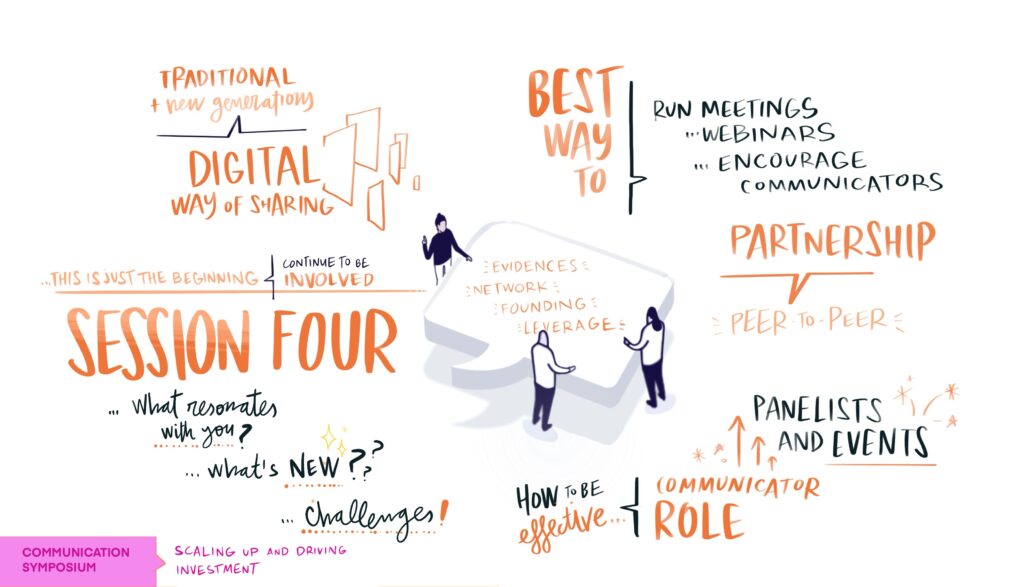 TRADITIONAL
+ new generations
DIGITAL
WAY OF SHARING
...THIS IS JUST THE BEGINNING
CONTINUE TO BE
INVOLVED
SESSION FOUR
... What resonates
with you?
... what's NEW???
... challenges!
EVIDENCES
NETWORK
FOUNDING
LEVERAGE
BEST
WAY
TO
RUN MEETINGS
... WEBINARS
... ENCOURAGE
COMMUNICATORS
PARTNERSHIP
PEER-TO-PEER
PANELISTS
AND EVENTS
HOW TO BE
effective...
COMMUNICATOR
ROLE
COMMUNICATION
SYMPOSIUM
SCALING UP AND DRIVING
INVESTMENT